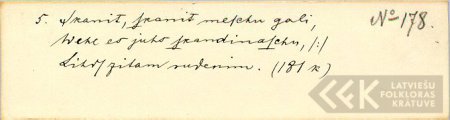 5. Skanit, skanit meschu gali, № 178.
Wehl es juhs skandinaschu, /:/
Lihds zitam rudenim. (181 k)
LATVIEŠU
FOLKLORAS
KRĀTUVE